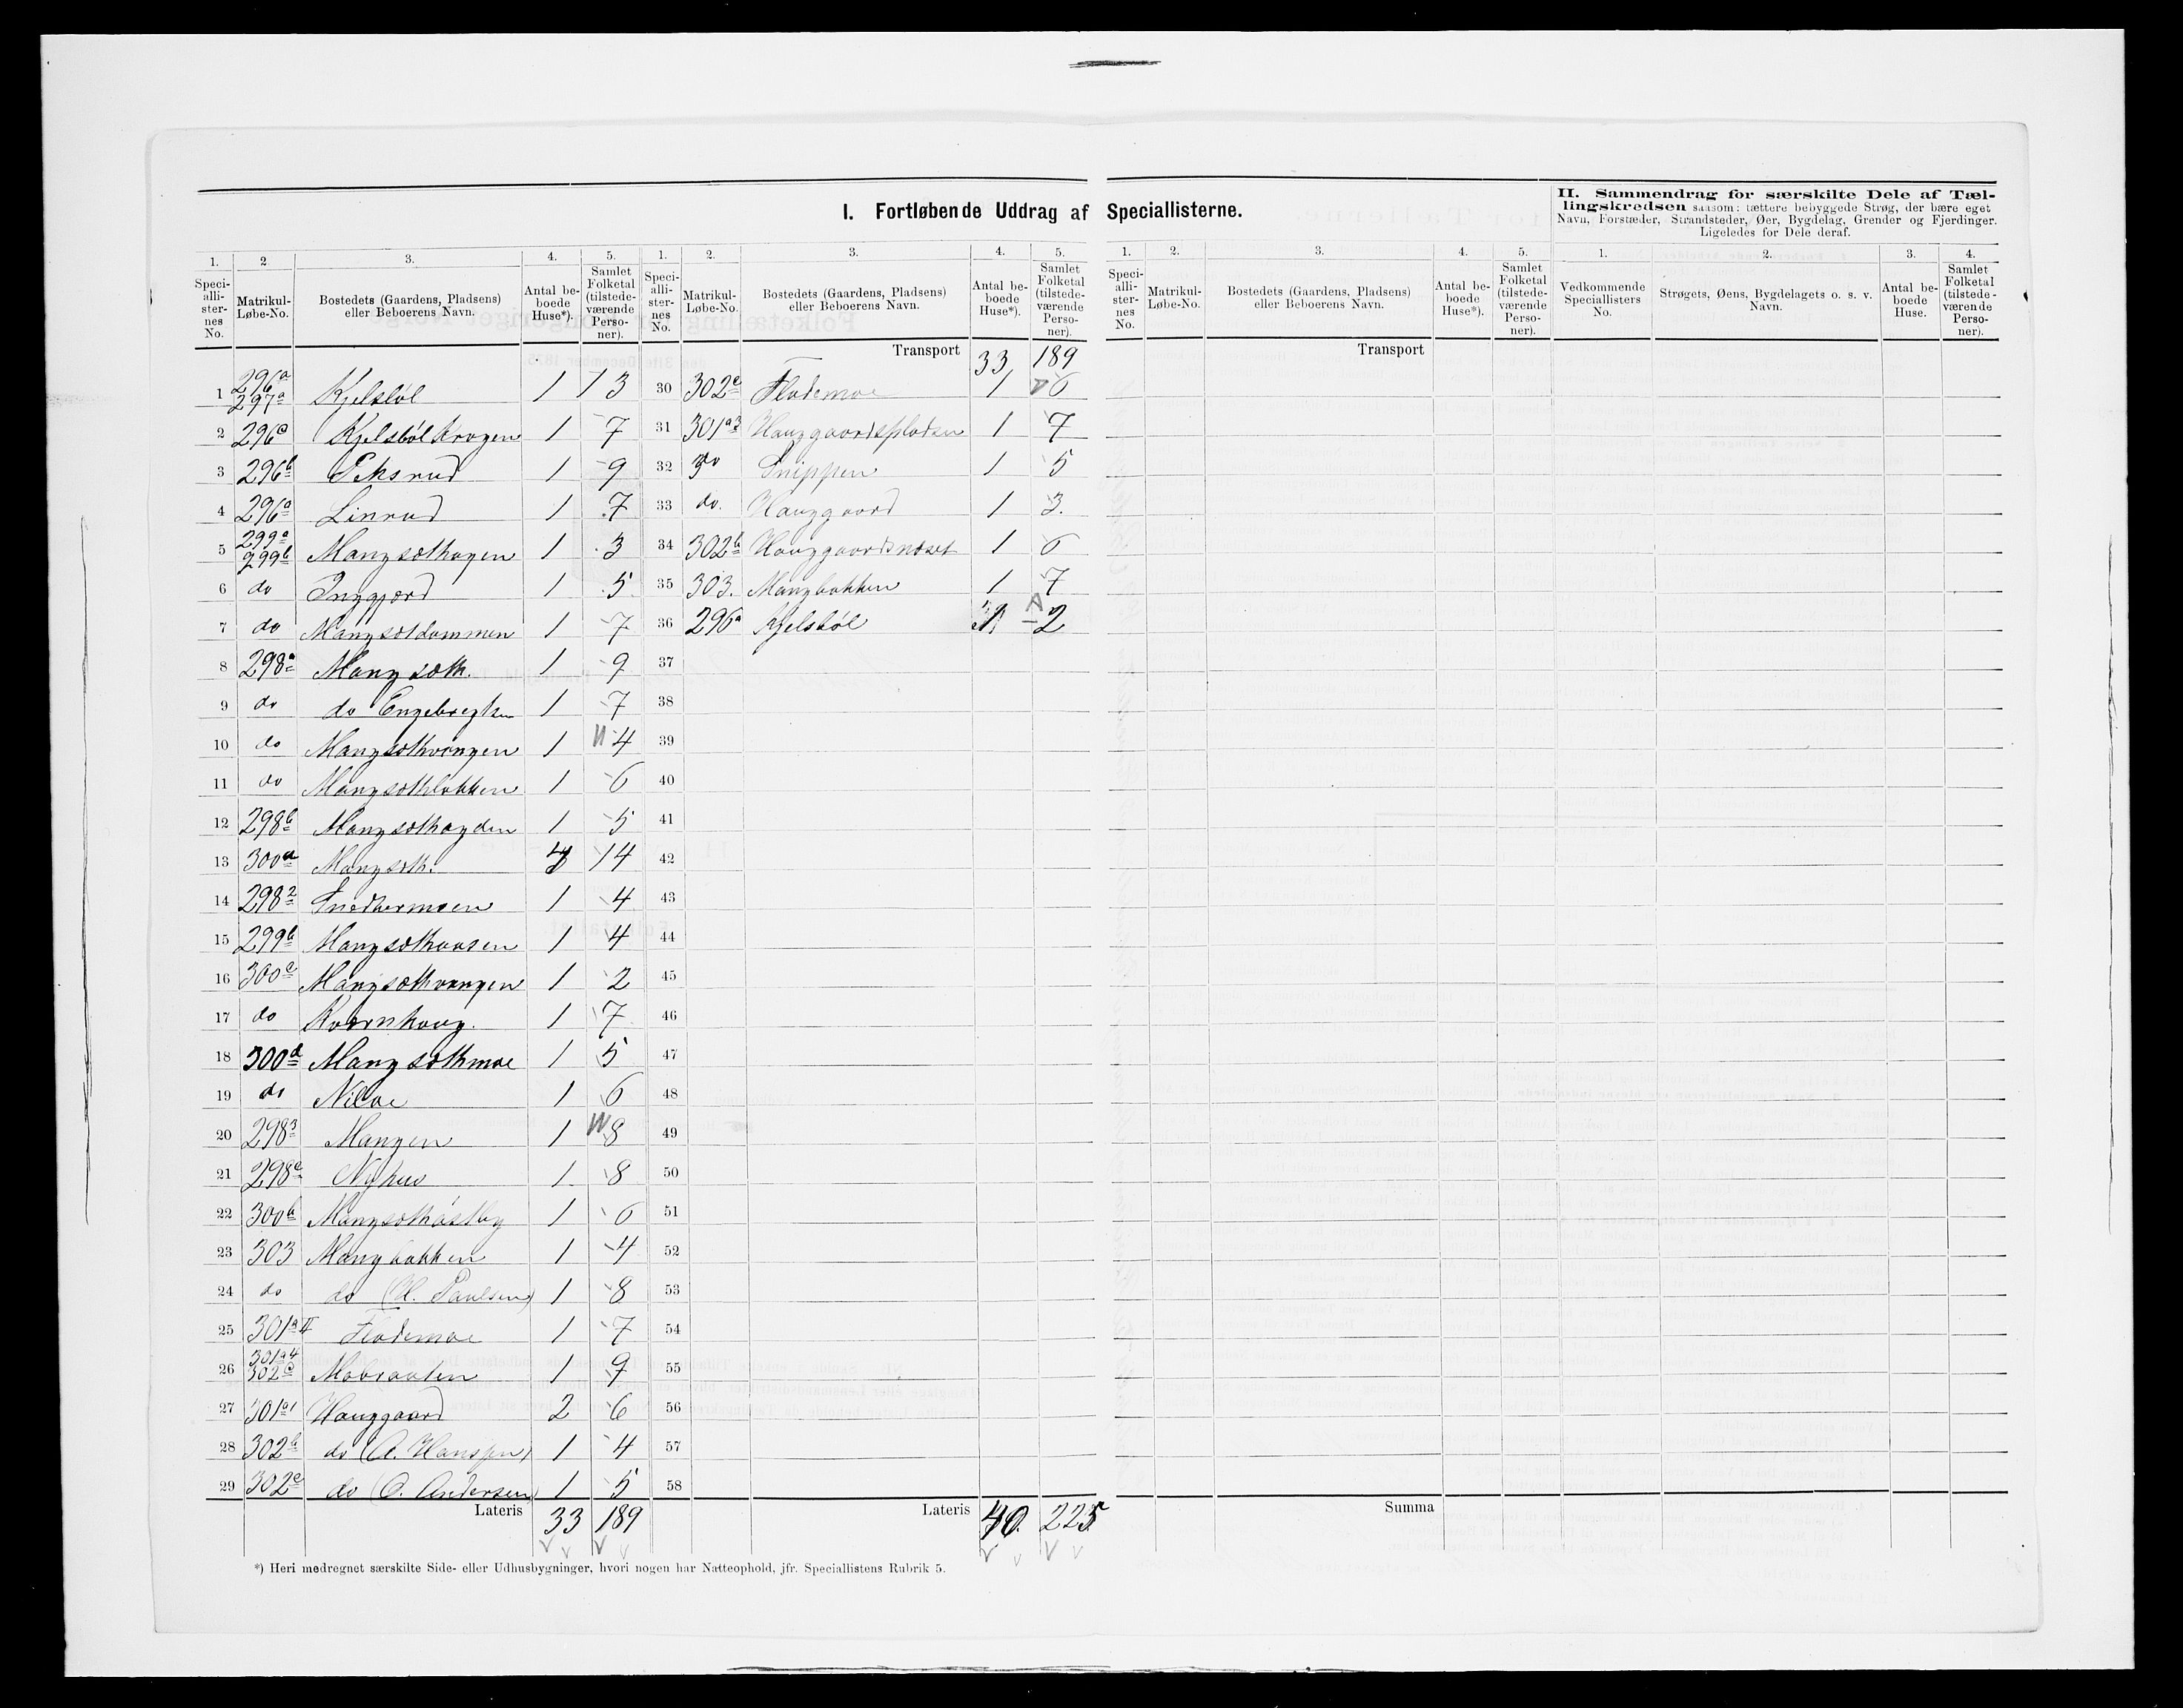 I. Fortløbende Uddrag af Speciallisterne.
II. Sammendrag for særskilte Dele af Tæl-
lingskredsen saasom: tættere bebyggede Strøg, der bære eget
Navn, Forstæder, Strandsteder, Øer, Bygdelag, Grender og Fjerdinger.
Ligeledes for Dele deraf.
1. 2 3. 4. 5. 1. 2. 3. 4. 5. 1. 2. 3. 4. 5. 1. 2. 3. 4.
Speci-alli-ster-nes No. Matrikul-Løbe-No. Bostedets (Gaardens, Pladsens) eller Beboerens Navn. Antal be-boede Huse*). Samlet Folketal (tilstede-værende Perso-ner).
Speci-alli-ster-nes No. Matrikul-Løbe-No. Bostedets (Gaardens, Pladsens) eller Beboerens Navn. Antal be-boede Huse*). Samlet Folketal (tilstede-værende Perso-ner).
Speci-alli-ster-nes No. Matrikul-Løbe-No. Bostedets (Gaardens, Pladsens) eller Beboerens Navn. Antal be-boede Huse*). Samlet Folketal (tilstede-værende Perso-ner).
Vedkommende Speciallisters No. Strøgets, Øens, Bygdelagets o. s. v. Navn. Antal be-boede Huse. Samlet Folketal (tilstede-værende Perso-ner).
1 296a 297a Kjelsböl 1 13
2 296c Kjelsböl Krogen 1 7
3 296b Peksrud 1 9
4 296a Linrud 1 7
5 299a 299b Mangsæthagen 1 3
6 do Inggjærd 1 5
7 do Mangsætdammen 1 7
8 298a Mangsæth. 1 9
9 do do Engebregtsen 1 7
10 do Mangsæthvangen 1 4
11 do Mangsæthløkken 1 6
12 298b Mangsæthøgden 1 5
13 300a Mangsæth. 4 14
14 298 2 Snedkermoen 1 4
15 299b Mangsæthaasen 1 4
16 300c Mangsæthvangen 1 2
17 do Kværnhaug. 1 7
18 300d Mangsæthmoe 1 5
19 do Niloe 1 6
20 298 3 Mangen 1 8
21 298c Nyhus 1 8
22 300b Mangsæthöstby 1 6
23 303 Mangbakken 1 4
24 do do (H. Paulsen) 1 8
25 301a II Flademoe 1 7
26 301a4 302c Mobraaten 1 9
27 301a1 Hauggaard 2 6
28 302b do (A. Hanssen) 1 4
29 302e do (O. Andersen) 1 5
Lateris 33 189
Transport 33 189
30 302e Flademoe 1 6
31 301a3 Hauggaardspladsen 1 7
32 do Snippen 1 5
33 do. Hauggaard 1 3.
34 302b Hauggaardsnæset 1 6
35 303. Mangbakken 1 7
36 296a Kjelsböl 1 2
37
38
39
40
41
42
43
44
45
46
47
48
49
50
51
52
53
54
55
56
57
58
Lateris 40. 225
Transport
Summa
*) Heri medregnet særskilte Side- eller Udhusbygninger, hvori nogen har Natteophold, jfr. Speciallistens Rubrik 5.